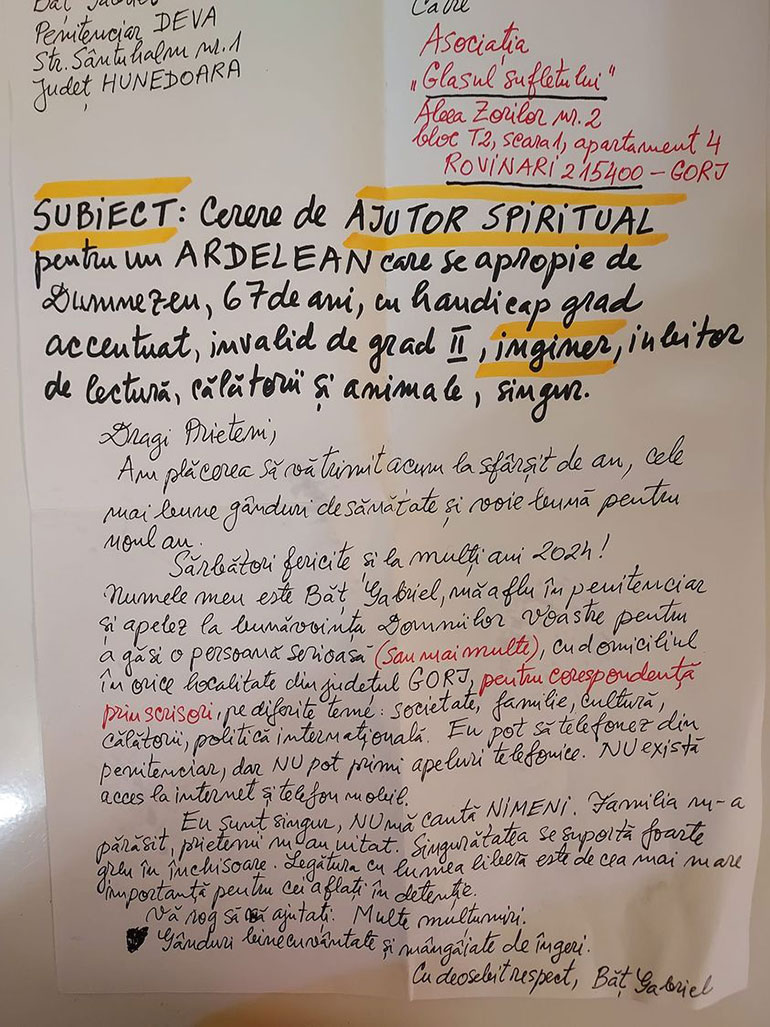 Băț Gabriel
Penitenciar DEVA
Str. Sântuhalm nr. 1
Județ HUNEDOARA
Către
Asociația
„Glasul sufletului"
Aleea Zorilor nr. 2
bloc T2, scara 1, apartament 4
ROVINARI 215400 – GORJ
SUBIECT: Cerere de AJUTOR SPIRITUAL
pentru un ARDELEAN care se apropie de
Dumnezeu, 67 de ani, cu handicap grad
accentuat, invalid de grad II, inginer, iubitor
de lectură, călătorii și animale, singur.
Dragi Prieteni,
Am plăcerea să vă trimit acum la sfârșit de an, cele
mai bune gânduri de sănătate și voie bună pentru
noul an.
Sărbători fericite și la mulți ani 2024!
Numele meu este Băț Gabriel, mă aflu în penitenciar
și apelez la bunăvoința Domniilor Voastre pentru
a găsi o persoană serioasă (sau mai multe), cu domiciliul
în orice localitate din județul GORJ, pentru corespondență
prin scrisori, pe diferite teme: societate, familie, cultură,
călătorii, politică internațională. Eu pot să telefonez din
penitenciar, dar NU pot primi apeluri telefonice. NU există
acces la internet și telefon mobil.
Eu sunt singur, NU mă caută NIMENI. Familia m-a
părăsit, prietenii m-au uitat. Singurătatea se suportă foarte
greu în închisoare. Legătura cu lumea liberă este de cea mai mare
importanță pentru cei aflați în detenție.
Vă rog să ajutați. Multe mulțumiri.
Gânduri binecuvântate și mângâiate de îngeri.
Cu deosebit respect, Băț Gabriel